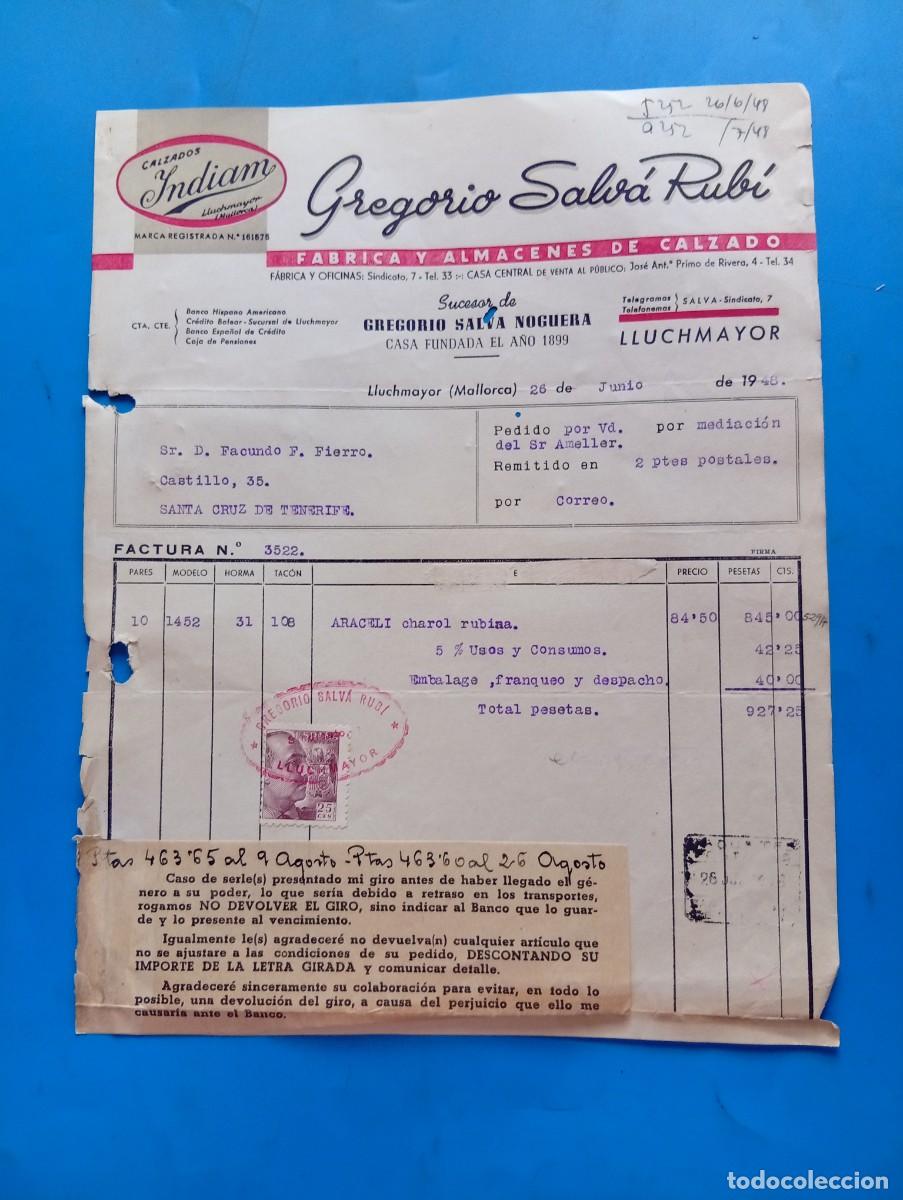 5252 26/6/48
9252 /7/48
CALZADOS
Indiam
Lluchmayor
(Mallorca)
MARCA REGISTRADA N.º 161676
Gregorio Salvá Rubí
FABRICA Y ALMACENES DE CALZADO
FÁBRICA Y OFICINAS: Sindicato, 7 - Tel. 33 :-: CASA CENTRAL DE VENTA AL PÚBLICO: José Ant.º Primo de Rivera, 4 - Tel. 34
CTA. CTE.
Banco Hispano Americano
Crédito Balear - Sucursal de Lluchmayor
Banco Español de Crédito
Caja de Pensiones
Sucesor de
GREGORIO SALVA NOGUERA
CASA FUNDADA EL AÑO 1899
Telegramas
Telefonemas
SALVA - Sindicato, 7
LLUCHMAYOR
Lluchmayor (Mallorca) 26 de Junio de 1948.
Sr. D. Facundo F. Fierro.
Castillo, 35.
SANTA CRUZ DE TENERIFE.
Pedido por Vd. por mediación
del Sr Ameller.
Remitido en 2 ptes postales.
por Correo.
FACTURA N.º 3522.
FIRMA
PARES MODELO HORMA TACÓN E PRECIO PESETAS CTS.
10 1452 31 108 ARACELI charol rubina. 84'50 845'00
5 % Usos y Consumos. 42'25
Embalage ,franqueo y despacho. 40'00
Total pesetas. 927'25
GREGORIO SALVÁ RUBÍ
LLUCHMAYOR
25
CTS
Ptas 463'65 al 9 Agosto - Ptas 463'60 al 26 Agosto
Caso de serle(s) presentado mi giro antes de haber llegado el gé-
nero a su poder, lo que sería debido a retraso en los transportes,
rogamos NO DEVOLVER EL GIRO, sino indicar al Banco que lo guar-
de y lo presente al vencimiento.
Igualmente le(s) agradeceré no devuelva(n) cualquier artículo que
no se ajustare a las condiciones de su pedido, DESCONTANDO SU
IMPORTE DE LA LETRA GIRADA y comunicar detalle.
Agradeceré sinceramente su colaboración para evitar, en todo lo
posible, una devolución del giro, a causa del perjuicio que ello me
causaría ante el Banco.
26
todocoleccion